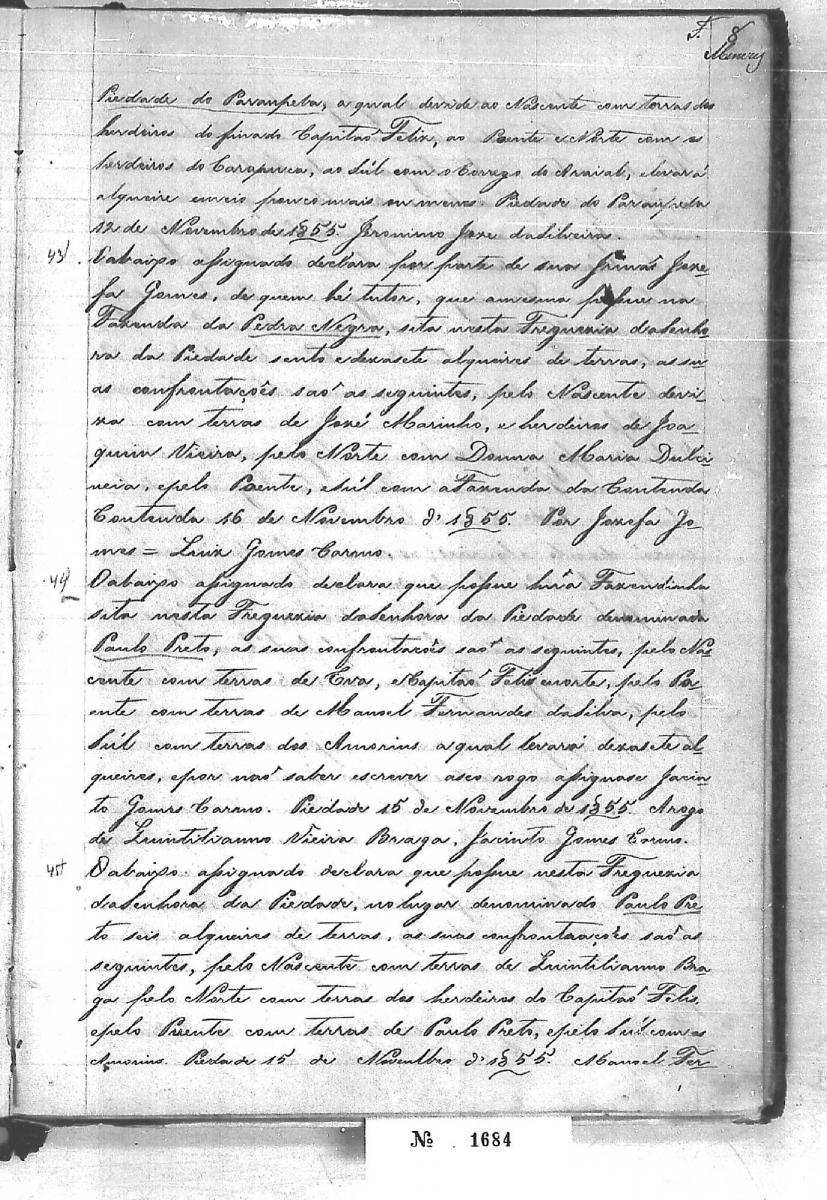 F. 8
Menezes
Piedade do Paraupeba, a qual devide ao Nascente com terras dos
herdeiros do finado Capitaõ Felix, ao Poente e Norte com os
herdeiros do Carapuca, ao Sul com o Corrego do Araial, e levará
alqueire e meio pouco mais ou menos. Piedade do Paraupeba
12 de Novembro de 1855. Jeronimo Joze da Silveira.
43) O abaixo assignado declara por parte de sua Irmaã Joze-
fa Gomes, de quem hé tutor, que a mesma possue na
Fazenda da Pedra Negra, sita nesta Freguezia da Senho-
ra da Piedade sento e dezasete alqueires de terras, as su-
as confrontações saõ as seguintes, pelo Nascente devi-
za com terras de Jozé Marinho, e herdeiros de Joa-
quim Vieira, pelo Norte com Donna Maria Dulci-
neia, e pelo Poente, e Sul com a Fazenda da Contenda
Contenda 16 de Novembro d' 1855. Por Jozefa Go-
mes = Luiz Gomes Carmo.
44) O abaixo assignado declara que possue huã Fazendinha
sita nesta Freguezia da Senhora da Piedade denominada
Paulo Preto, as suas confrontacões saõ as seguintes, pelo Nas-
cente com terras de Eva, e Capitaõ Felis e norte, pelo Po-
ente com terras de Manoel Fernandes da Silva, pelo
Sul com terras dos Amorins a qual levará dezasete al-
queires, e por naõ saber escrever a seo rogo assignose Jacin-
to Gomes Carmo. Piedade 15 de Novembro de 1855. Arogo
de Quintilianno Vieira Braga, Jacinto Gomes Carmo.
45) O abaixo assignado declara que possue nesta Freguezia
da Senhora da Piedade, no lugar denominado Paulo Pre-
to seis alqueires de terras, as suas confrontações saõ as
seguintes, pelo Nascente com terras de Quintilianno Bra-
ga pelo Norte com terras dos herdeiros do Capitaõ Felis,
e pelo Poente com terras de Paulo Preto, e pelo Sul com os
Amorins. Piedade 15 de Novembro d' 1855. Manoel Fer-
Nº 1684